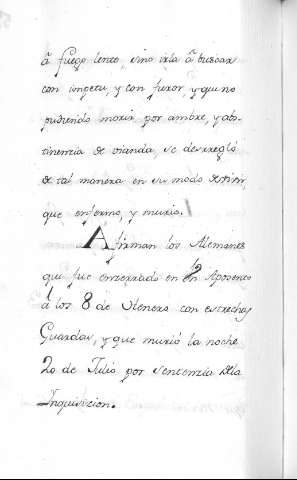 â fuego lento, sino irla â buscar
con impetu, y con furor, y que no
pudiendo morir por ambre, y abs-
tinenzia de vianda, se desreglò
de tal manera en su modo de vivir,
que enfermo, y murio.
Afirman los Alemanes
que fue enzerrado en Aposento
á los 8 de Henero con estrechas
Guardas, y que murió la noche
20 de Julio por Sentenzia dela
Inquisizion.